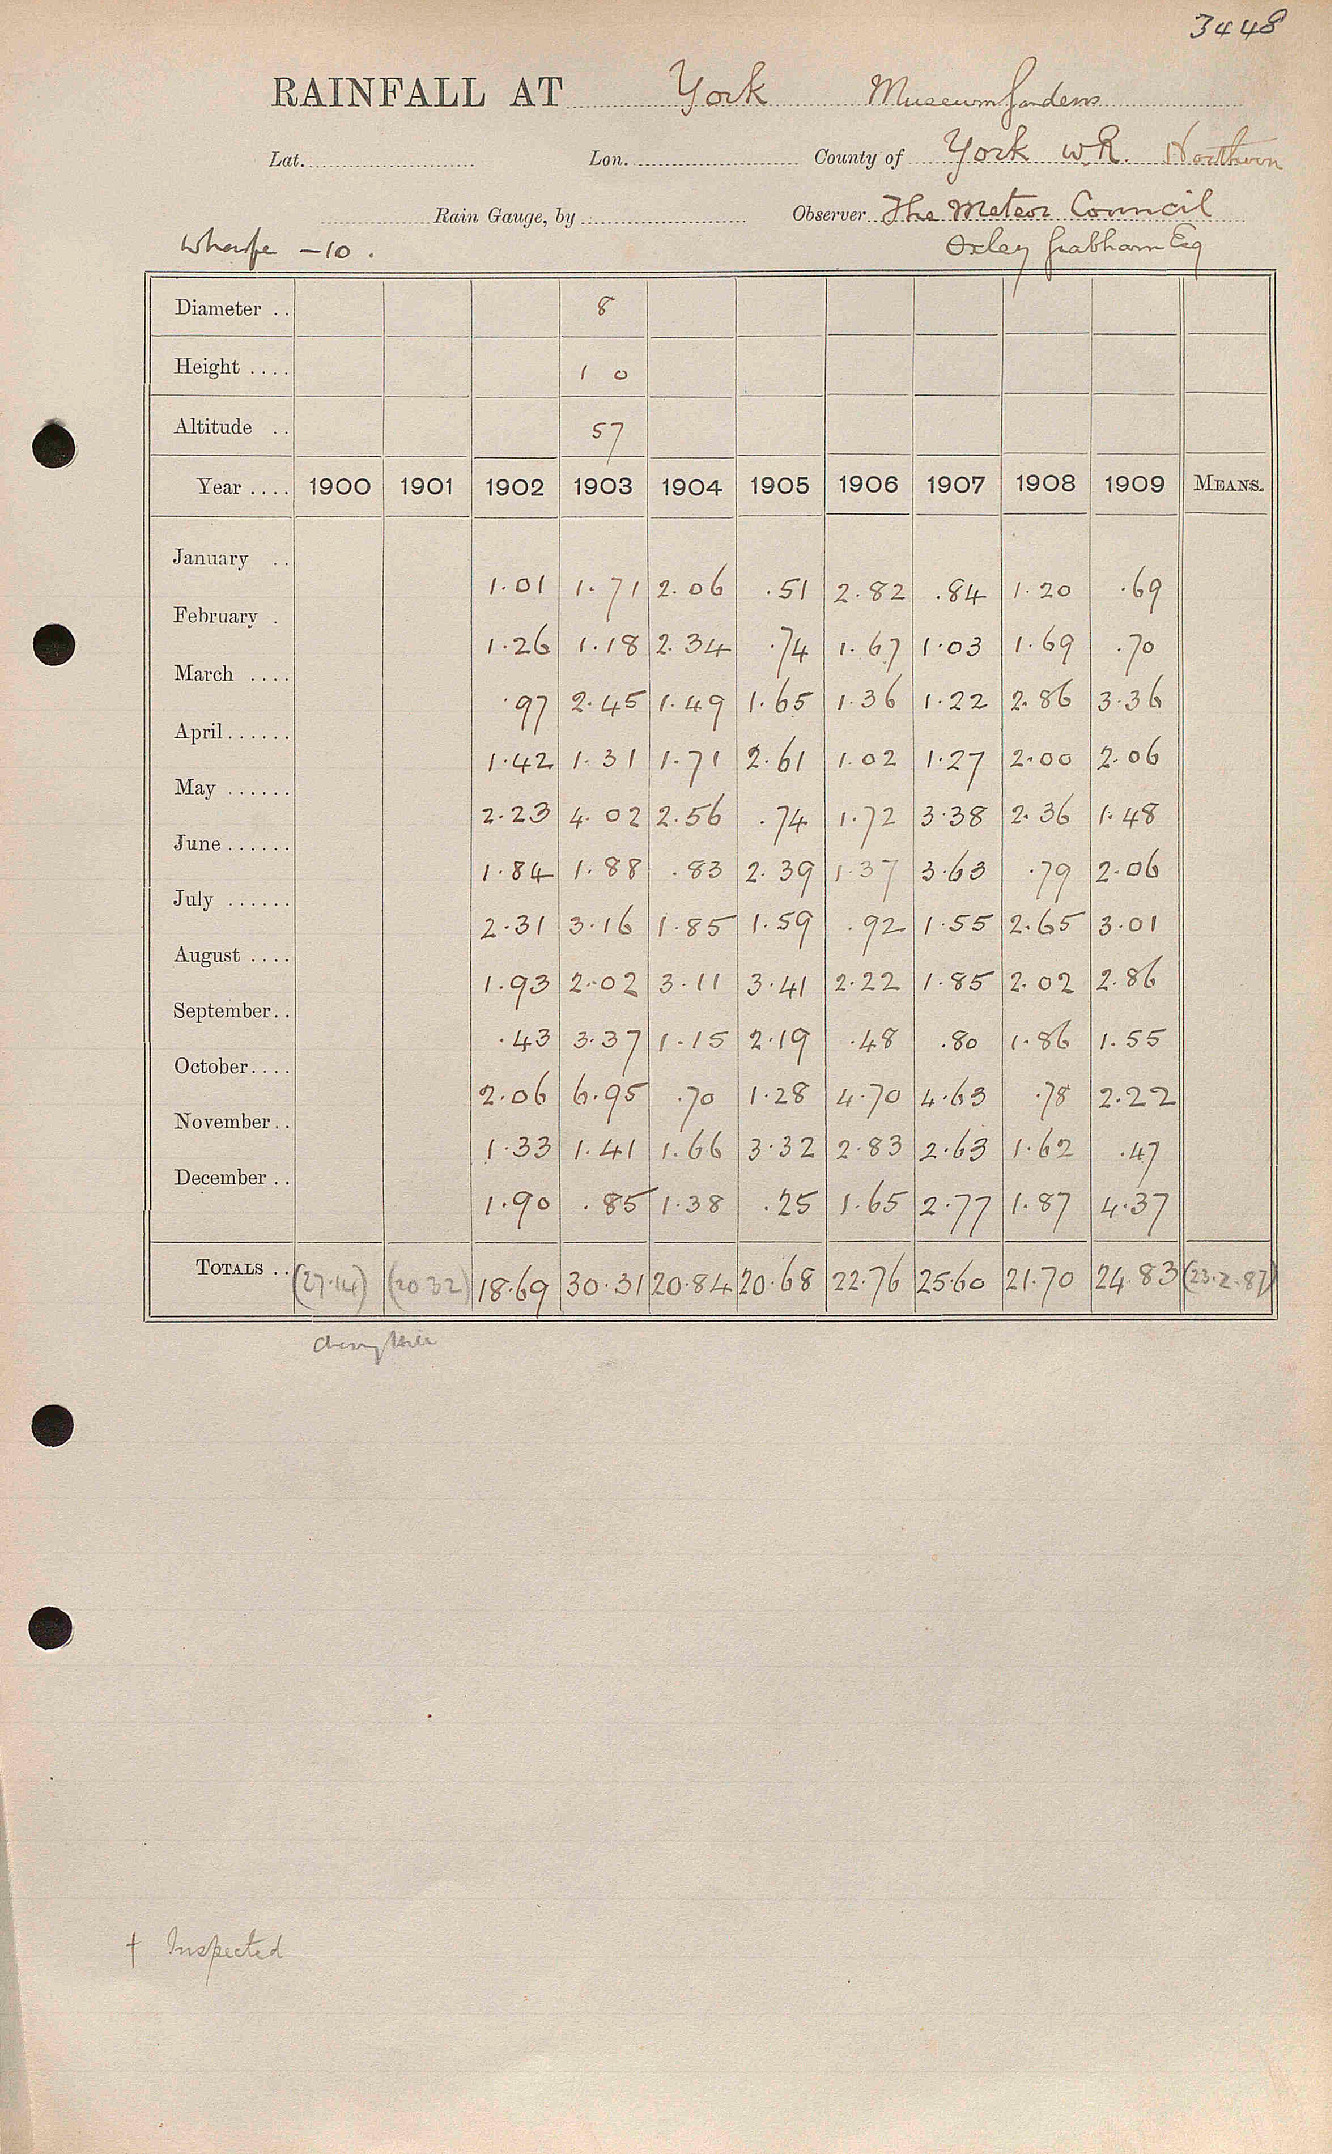 3448
RAINFALL AT York Museum Gardens
Lat. Lon. County of York W.R. Northern
Rain Gauge, by Observer The Meteor Council
Wharfe -10. Oxley Grabham Esq
Diameter .. 8
Height .... 1 0
Altitude .. 57
Year .... 1900 1901 1902 1903 1904 1905 1906 1907 1908 1909 MEANS.
January .. 1.01 1.71 2.06 .51 2.82 .84 1.20 .69
February . 1.26 1.18 2.34 .74 1.67 1.03 1.69 .70
March .... .97 2.45 1.49 1.65 1.36 1.22 2.86 3.36
April...... 1.42 1.31 1.71 2.61 1.02 1.27 2.00 2.06
May ...... 2.23 4.02 2.56 .74 1.72 3.38 2.36 1.48
June ...... 1.84 1.88 .83 2.39 1.37 3.63 .79 2.06
July ...... 2.31 3.16 1.85 1.59 .92 1.55 2.65 3.01
August .... 1.93 2.02 3.11 3.41 2.22 1.85 2.02 2.86
September.. .43 3.37 1.15 2.19 .48 .80 1.86 1.55
October.... 2.06 6.95 .70 1.28 4.70 4.63 .78 2.22
November.. 1.33 1.41 1.66 3.32 2.83 2.63 1.62 .47
December .. 1.90 .85 1.38 .25 1.65 2.77 1.87 4.37
TOTALS .. (27.14) (20.32) 18.69 30.31 20.84 20.68 22.76 25.60 21.70 24.83 (23.2.87)
Cherry Hill
† Inspected